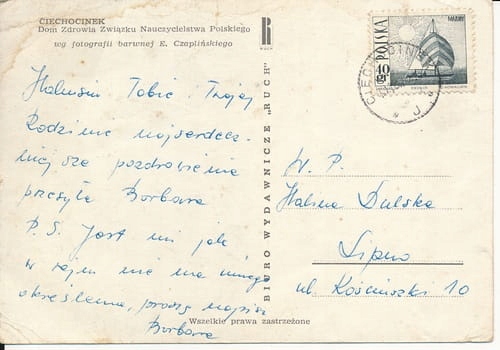 CIECHOCINEK
Dom Zdrowia Związku Nauczycielstwa Polskiego
wg fotografii barwnej E. Czaplińskiego
RUCH
Halusiu Tobie i Twojej
Rodzinie najserdecz-
niejsze pozdrowienia
przesyła Barbara
P.S. Jest mi jak
w raju nie ma innego
określenia, proszę napisz
Barbara
BIURO WYDAWNICZE „RUCH"
Wszelkie prawa zastrzeżone
POLSKA
40 gr
CIECHOCINEK
W. P.
Halina Dulska
Lipno
ul. Kościuszki 10